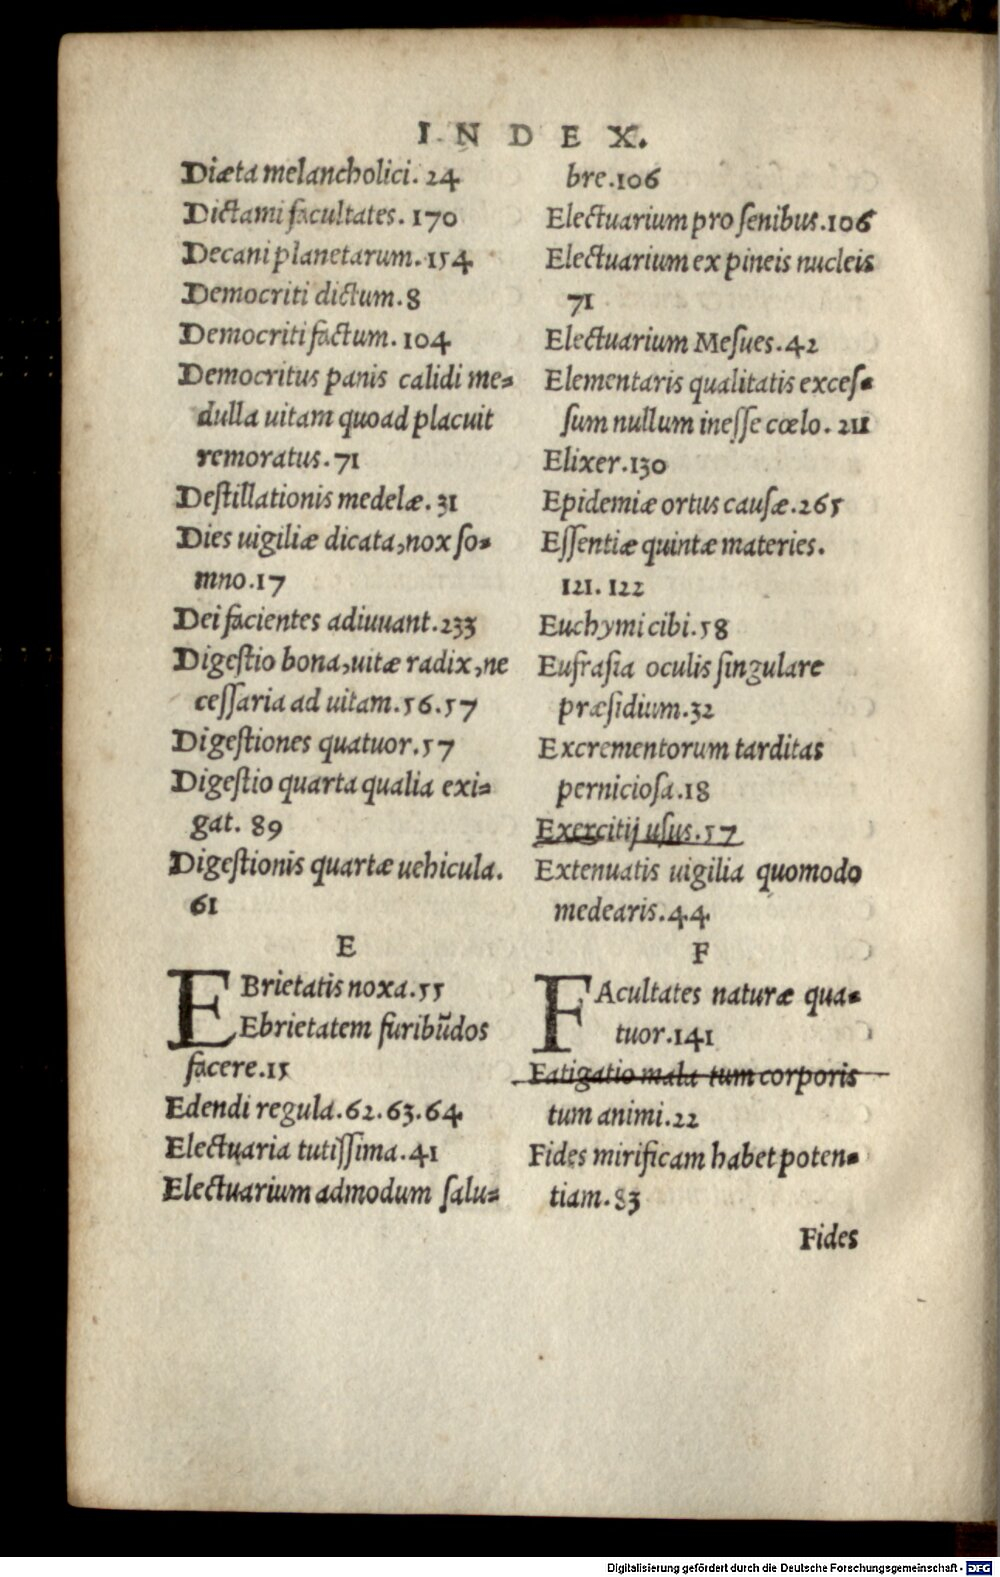 INDEX.
Diæta melancholici. 24
Dictami facultates. 170
Decani planetarum. 154
Democriti dictum. 8
Democriti factum. 104
Democritus panis calidi me=
dulla uitam quoad placuit
remoratus. 71
Deſtillationis medelæ. 31
Dies uigiliæ dicata, nox ſo=
mno. 17
Dei facientes adiuuant. 233
Digeſtio bona, uitæ radix, ne
ceſſaria ad uitam. 56. 57
Digeſtiones quatuor. 57
Digeſtio quarta qualia exi=
gat. 89
Digeſtionis quartæ uehicula.
61
E
EBrietatis noxa. 55
Ebrietatem furibūdos
facere. 15
Edendi regula. 62. 63. 64
Electuaria tutiſſima. 41
Electuarium admodum ſalu=
bre. 106
Electuarium pro ſenibus. 106
Electuarium ex pineis nucleis
71
Electuarium Meſues. 42
Elementaris qualitatis exceſ=
ſum nullum ineſſe cœlo. 211
Elixer. 130
Epidemiæ ortus cauſæ. 265
Eſſentiæ quintæ materies.
121. 122
Euchymi cibi. 58
Eufraſia oculis ſingulare
præſidium. 32
Excrementorum tarditas
pernicioſa. 18
Exercitij uſus. 57
Extenuatis uigilia quomodo
medearis. 44
F
FAcultates naturæ qua=
tuor. 141
Fatigatio mala tum corporis
tum animi. 22
Fides mirificam habet poten=
tiam. 83
Fides
Digitalisierung gefördert durch die Deutsche Forschungsgemeinschaft - DFG